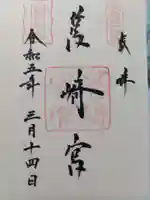 奉拝
筥崎宮
令和五年 三月十四日